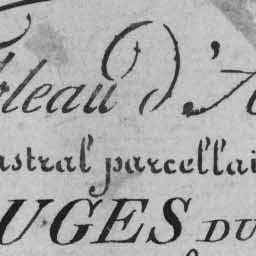 bleau d'A
astral parcellai
UGES DU